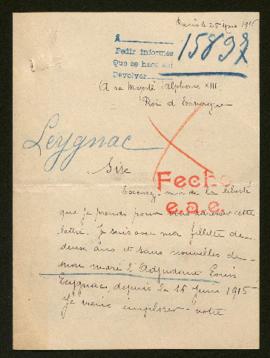 Paris le 25 1915
A
Pedir informes
Que se haga
Devolver
15897
A sa Majesté Alphonse XIII
Roi d'Espagne
Leygnac
Sire
Excusez moi de la liberté
que je prends pour vous adresser cette
lettre. Je suis avec ma fillette de
deux ans et sans nouvelles de
mon mari l'Adjudant Louis
Leygnac, depuis le 16 Juin 1915
Je viens implorer votre
Fecho
e.a.e.